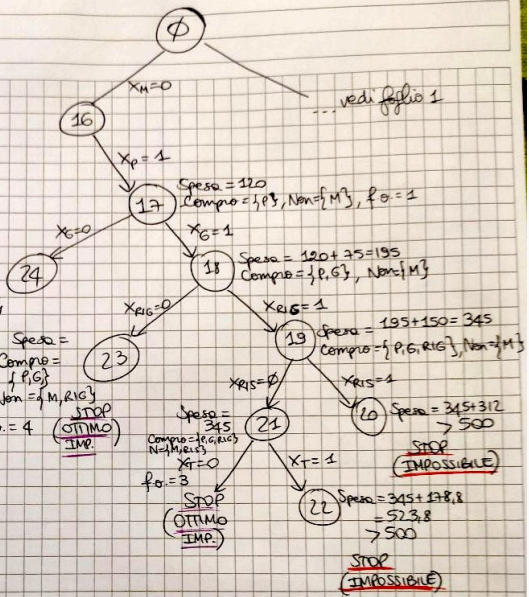 0
X_M=0
... vedi foglio 1
16
X_P=1
17
Spesa = 120
Compro={P}, Non={M}, f.o.=1
X_G=0
X_G=1
24
18
Spesa = 120+75=195
Compro={P,G}, Non={M}
X_RIG=0
X_RIG=1
23
Spesa =
Compro=
{P,G}
Non={M,RIG}
.= 4
STOP
(OTTIMO
IMP.)
19
Spesa = 195+150=345
Compro={P,G,RIG}, Non={M}
X_RIS=0
X_RIS=1
20
Spesa=345+312
>500
STOP
(IMPOSSIBILE)
21
Spesa=
345
Compro={P,G,RIG}
N={M,RIS}
f.o.=3
X_T=0
X_T=1
STOP
(OTTIMO
IMP.)
22
Spesa=345+178,8
=523,8
>500
STOP
(IMPOSSIBILE)